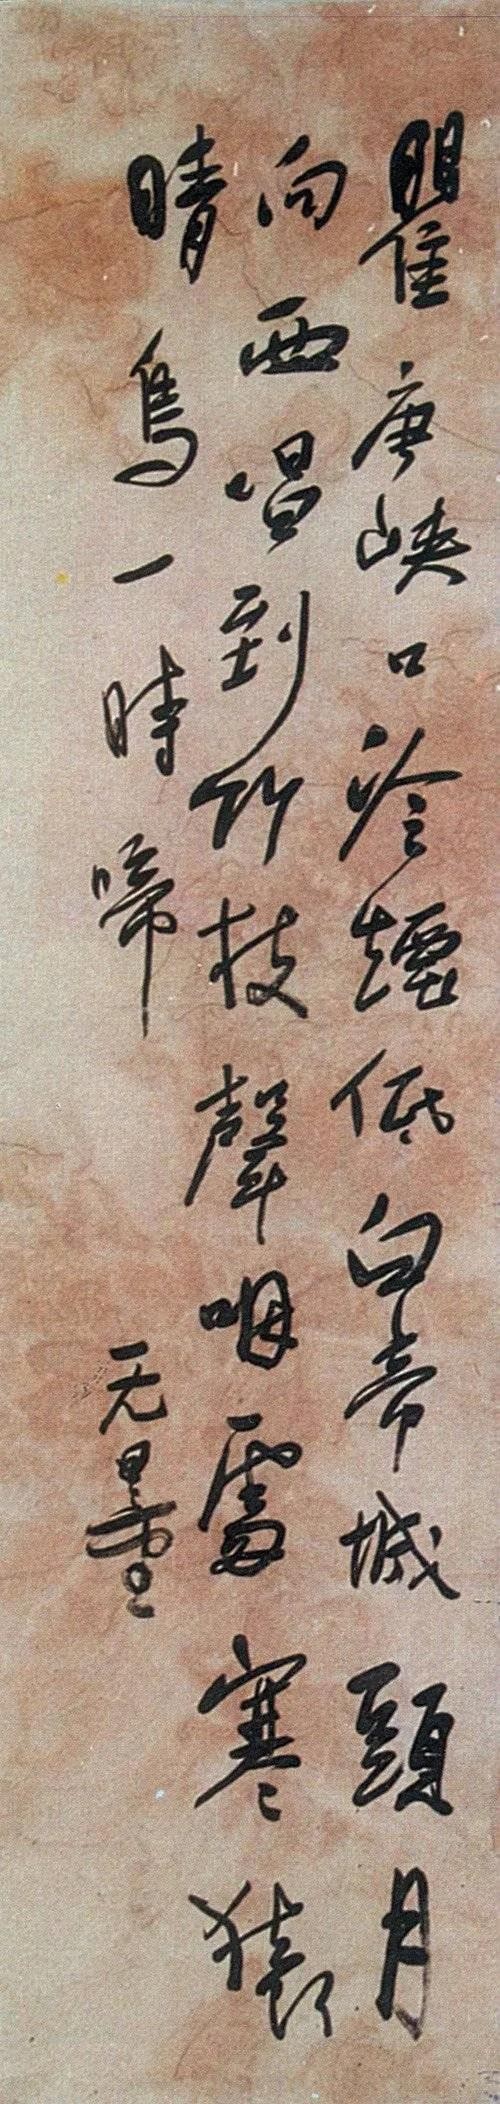 瞿唐峡口冷煙低白帝城頭月
向西唱到竹枝聲咽處寒猿
晴鳥一時啼
无量